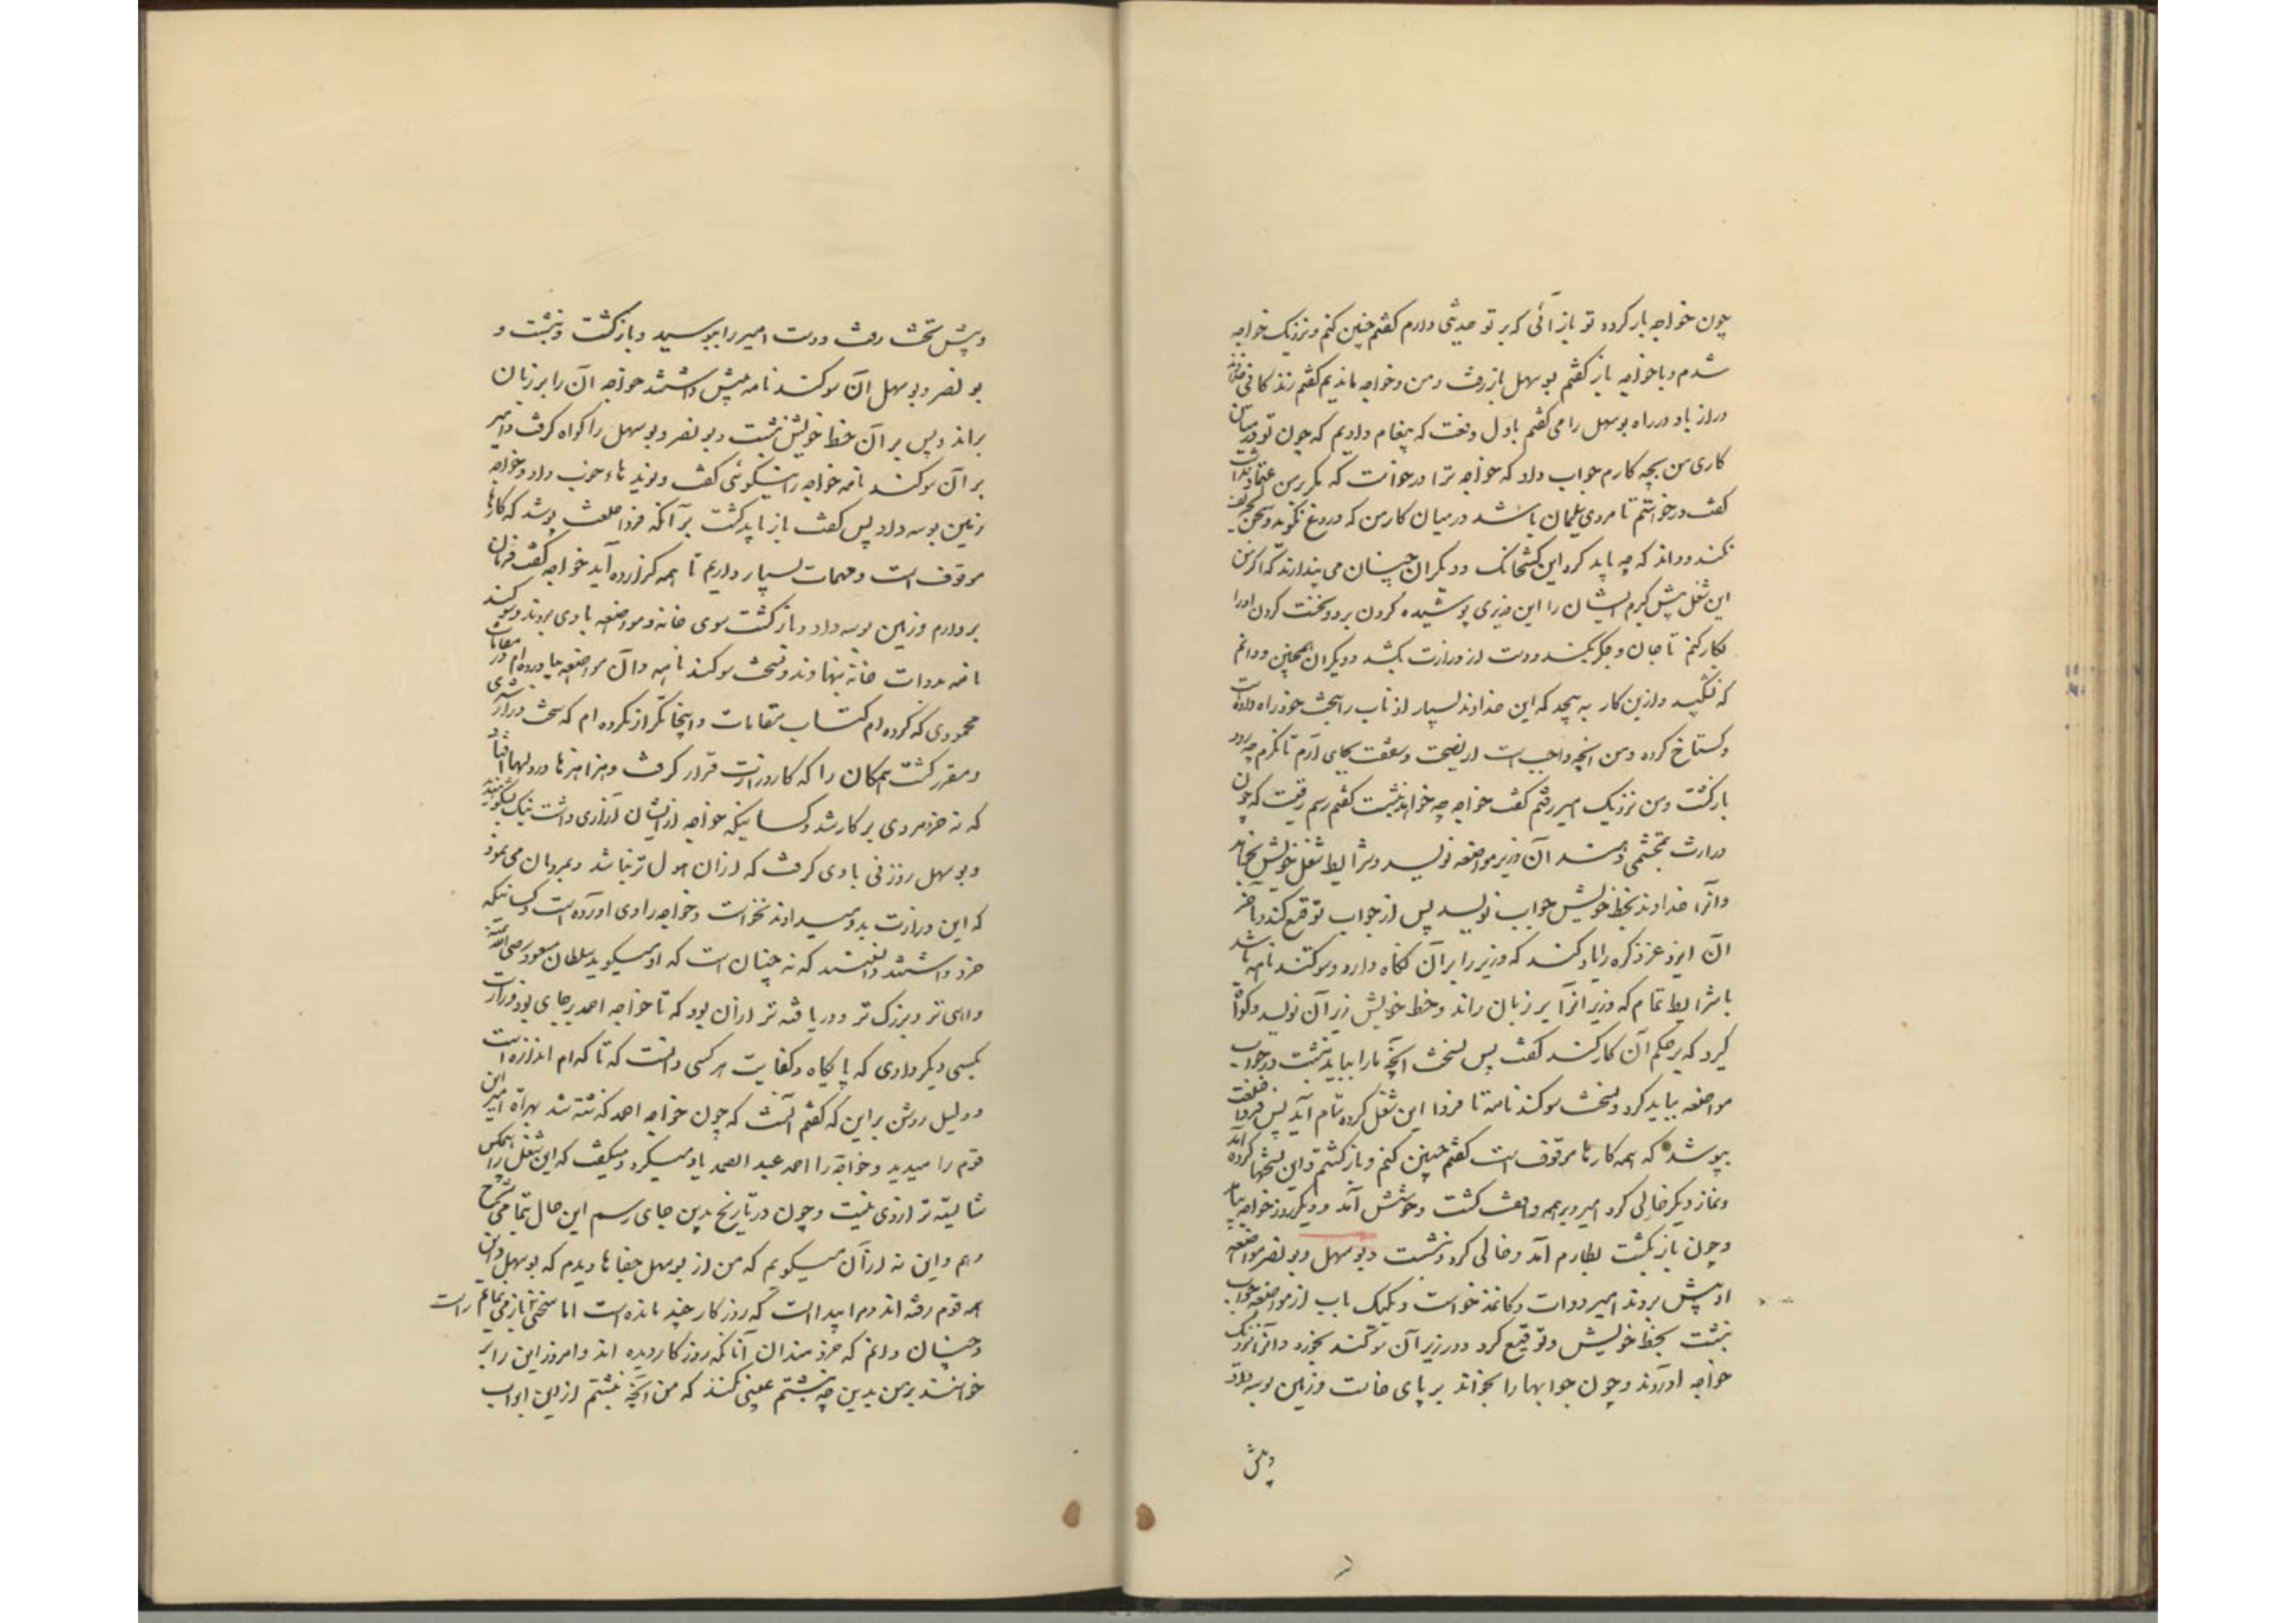 چون خواجه بازگردد تو بازآئی که بر تو حدیثی دارم گفتم چنین کنم و نزدیک خواجه
شدم و با خواجه باز گفتم بوسهل باز رفت و من و خواجه ماندیم گفتم زندگانی خداوند
دراز باد در راه بوسهل را می گفتم باول دفعت که پیغام دادیم که چون تو در میان
کاری من بچه کارم جواب داد که خواجه ترا درخواست که مگر بر من اعتماد نداشت
گفت درخواستم تا مردی مسلمان باشد در میان کار من که دروغ نگوید و سخن تحریف
نکند و داند که چه باید کرد این کشخانک و دیگران چنان می پندارند که اگر من
این شغل پیش گیرم ایشان را این وزیری پوشیده کردن برود نخست گردن او را
فگار کنم تا جان و جگر بکند و دست از وزارت بکشد و دیگران همچنین و دانم
که نشکیبد و ازین کار بپیچد که این خداوند بسیار اذناب را بتخت خود راه داده است
و گستاخ کرده و من آنچه واجب است از نصیحت و شفقت بجای آرم تا نگرم چه رود
بازگشت و من نزدیک امیر رفتم گفت خواجه چه خواهد نبشت گفتم رسم رفتست که چون
وزارت بمحتشمی دهند آن وزیر مواضعه نویسد و شرایط شغل خویش بخواهد
و آنرا خداوند بخط خویش جواب نویسد پس از جواب توقیع کند و بآخر
آن ایزد عز ذکره را یاد کند که وزیر را بر آن نگاه دارد و سوگند نامه باشد
با شرایط تمام که وزیر آنرا بر زبان راند و خط خویش زیر آن نویسد و گواه
گیرد که بر حکم آن کار کند گفت پس نسخت آنچه ما را بباید نبشت در جواب
مواضعه بباید کرد و نسخت سوگند نامه تا فردا این شغل کرده تمام آید پس فردا خلعت
بپوشد که همه کارها موقوف است گفتم چنین کنم و بازگشتم و این نسختها کرده آمد
و نماز دیگر خالی کرد امیر و بر همه واقف گشت و خوشش آمد و دیگر روز خواجه بیامد
و چون بار بگشت بطارم آمد و خالی کرد و نشست و بوسهل و بونصر مواضعه
او پیش بردند امیر دوات و کاغذ خواست و یکیک باب از مواضعه جواب
نبشت بخط خویش و توقیع کرد و در زیر آن سوگند بخورد و آنرا نزدیک
خواجه آوردند و چون جوابها را بخواند بر پای خاست و زمین بوسه داد
و پیش
و پیش تخت رفت و دست امیر را ببوسید و بازگشت و بنشست و
بونصر و بوسهل آن سوگند نامه پیش داشتند خواجه آن را بر زبان
براند و پس بر آن خط خویش نبشت و بونصر و بوسهل را گواه گرفت و امیر
بر آن سوگند نامه خواجه را نیکوئی گفت و نوید هاء خوب داد و خواجه
زمین بوسه داد پس گفت باز باید گشت بر آنکه فردا خلعت پوشد که کارها
موقوف است و مهمات بسیار داریم تا همه گزارده آید خواجه گفت فرمان
بردارم و زمین بوسه داد و بازگشت سوی خانه و مواضعه با وی بردند و سوگند
نامه بدوات خانه بنهادند و نسخت سوگند نامه و آن مواضعه بیاورده ام در مقامات
محمودی که کرده ام کتاب مقامات و اینجا تکرار نکرده ام که سخت دراز شدی
و مقرر گشت همگان را که کار وزارت قرار گرفت و هزاهزها در دلها افتاد
که نه خرد مردی بر کار شد و کسانیکه خواجه از ایشان آزاری داشت نیک بشکوهیدند
و بوسهل زوزنی بادی گرفت که از آن هول تر نباشد و بمردمان می نمود
که این وزارت بدو میدادند نخواست و خواجه را وی آورده است و کسانیکه
خرد داشتند دانستند که نه چنان است که او میگوید سلطان مسعود رضی الله عنه
داهی تر و بزرگ تر و دریافته تر از آن بود که تا خواجه احمد بر جای بود وزارت
بکسی دیگر دادی که پایگاه و کفایت هر کسی دانست که تا کدام اندازه است
و دلیل روشن بر این که گفتم آنست که چون خواجه احمد گذشته شد بهراة امیر این
قوم را میدید و خواجه را احمد عبد الصمد یاد میکرد و میگفت که این شغل را هیچکس
شایسته تر از وی نیست و چون در تاریخ بدین جای رسم این حال بتمامی شرح
دهم و این نه از آن میگویم که من از بوسهل جفاها دیدم که بوسهل و این
همه قوم رفته اند و مرا پیداست که روزگار چند مانده است اما سخنی راست باز می نمایم
و چنان دانم که خردمندان آنانکه روزگار دیده اند و امروز این را بر
خوانند بر من بدین چه نبشتم عیبی نکنند که من آنچه نبشتم از این ابواب